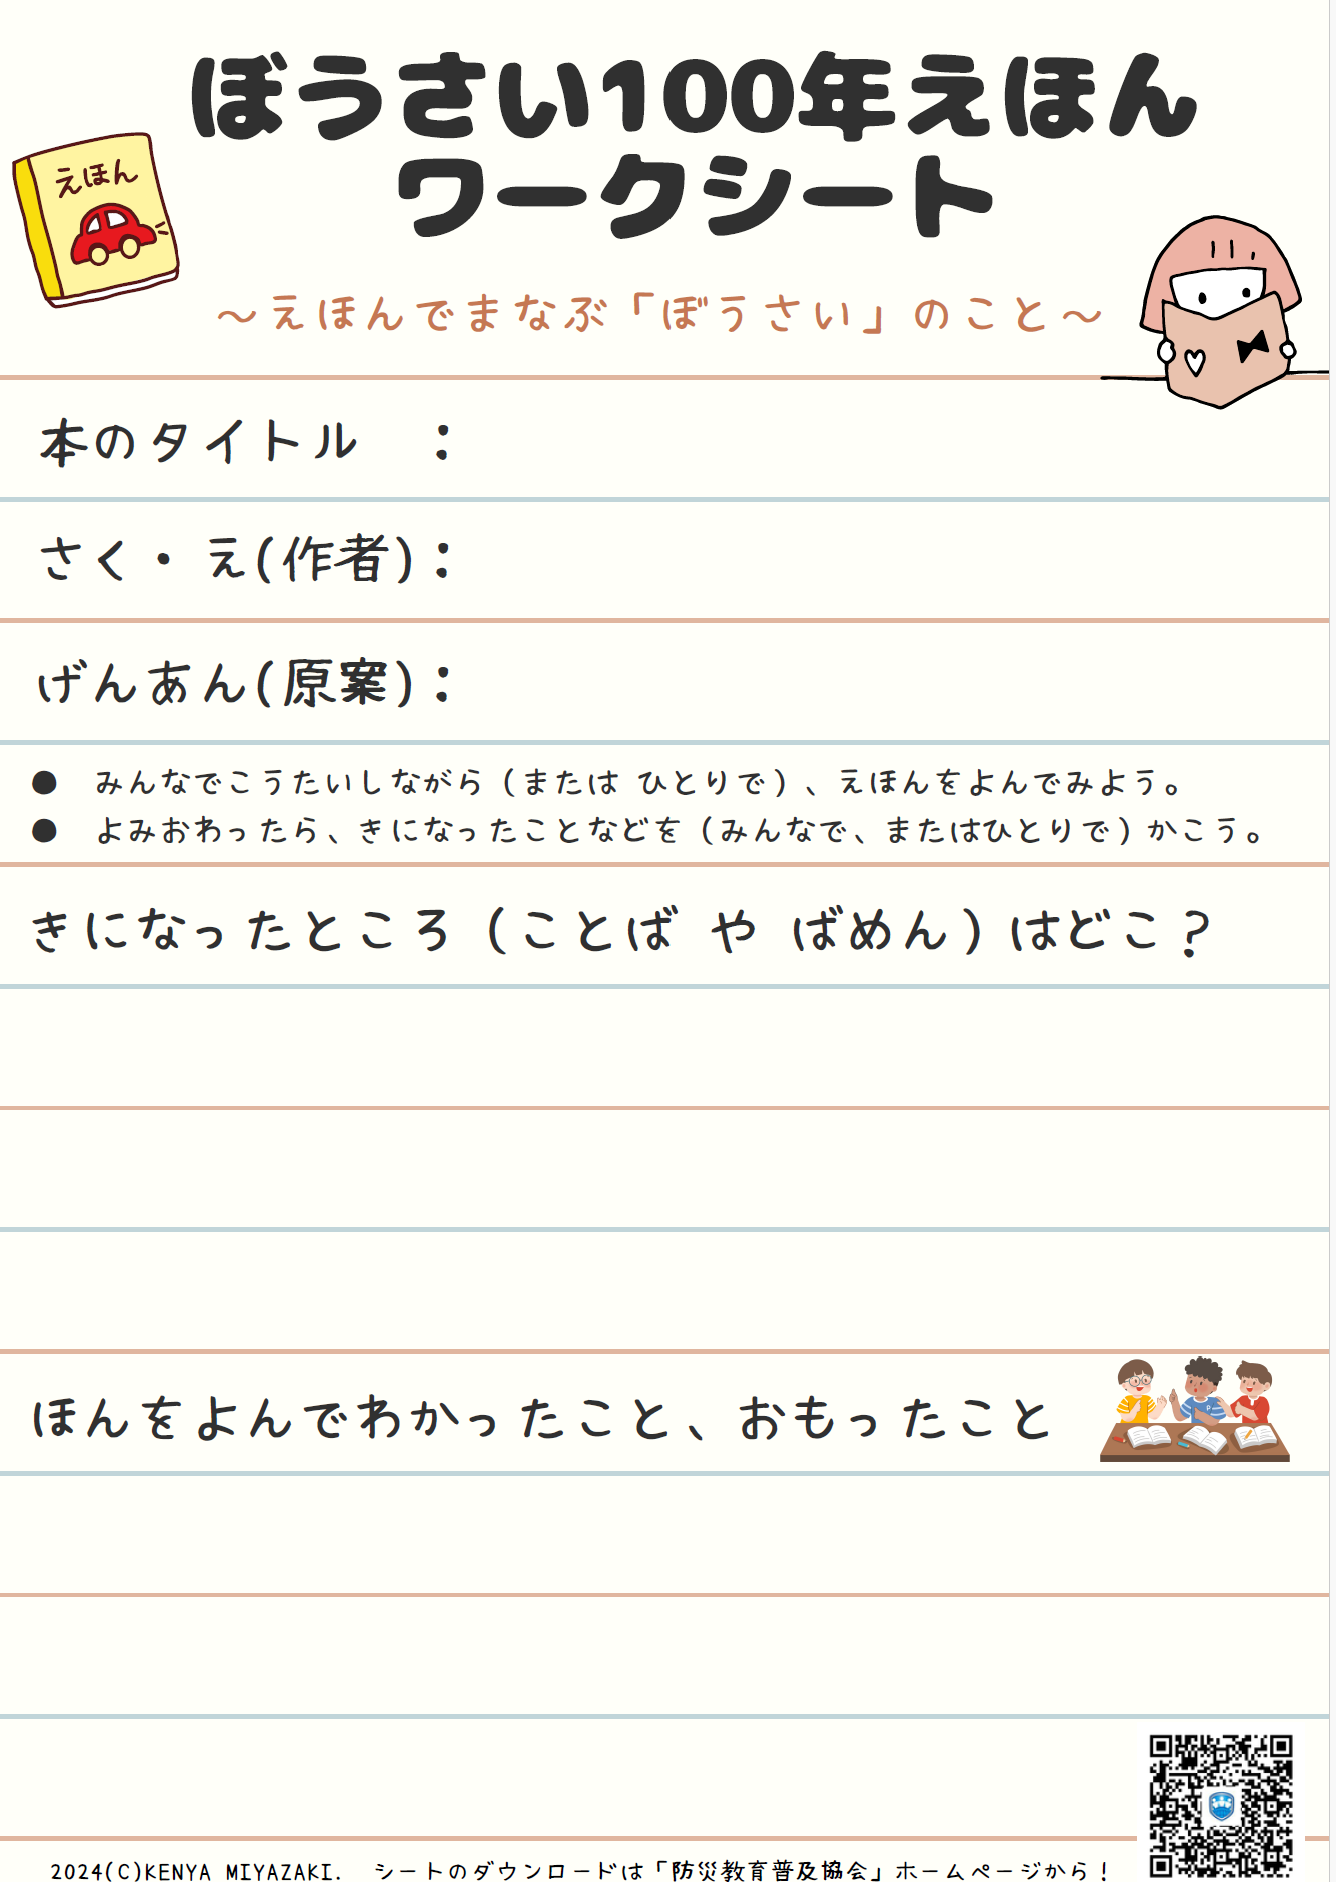 ぼうさい100年えほん
ワークシート
えほん
～えほんでまなぶ「ぼうさい」のこと～
本のタイトル　：
さく・え(作者)：
げんあん(原案)：
● みんなでこうたいしながら（または ひとりで）、えほんをよんでみよう。
● よみおわったら、きになったことなどを（みんなで、またはひとりで）かこう。
きになったところ（ことば や ばめん）はどこ？
ほんをよんでわかったこと、おもったこと
2024(C)KENYA MIYAZAKI.　シートのダウンロードは「防災教育普及協会」ホームページから！